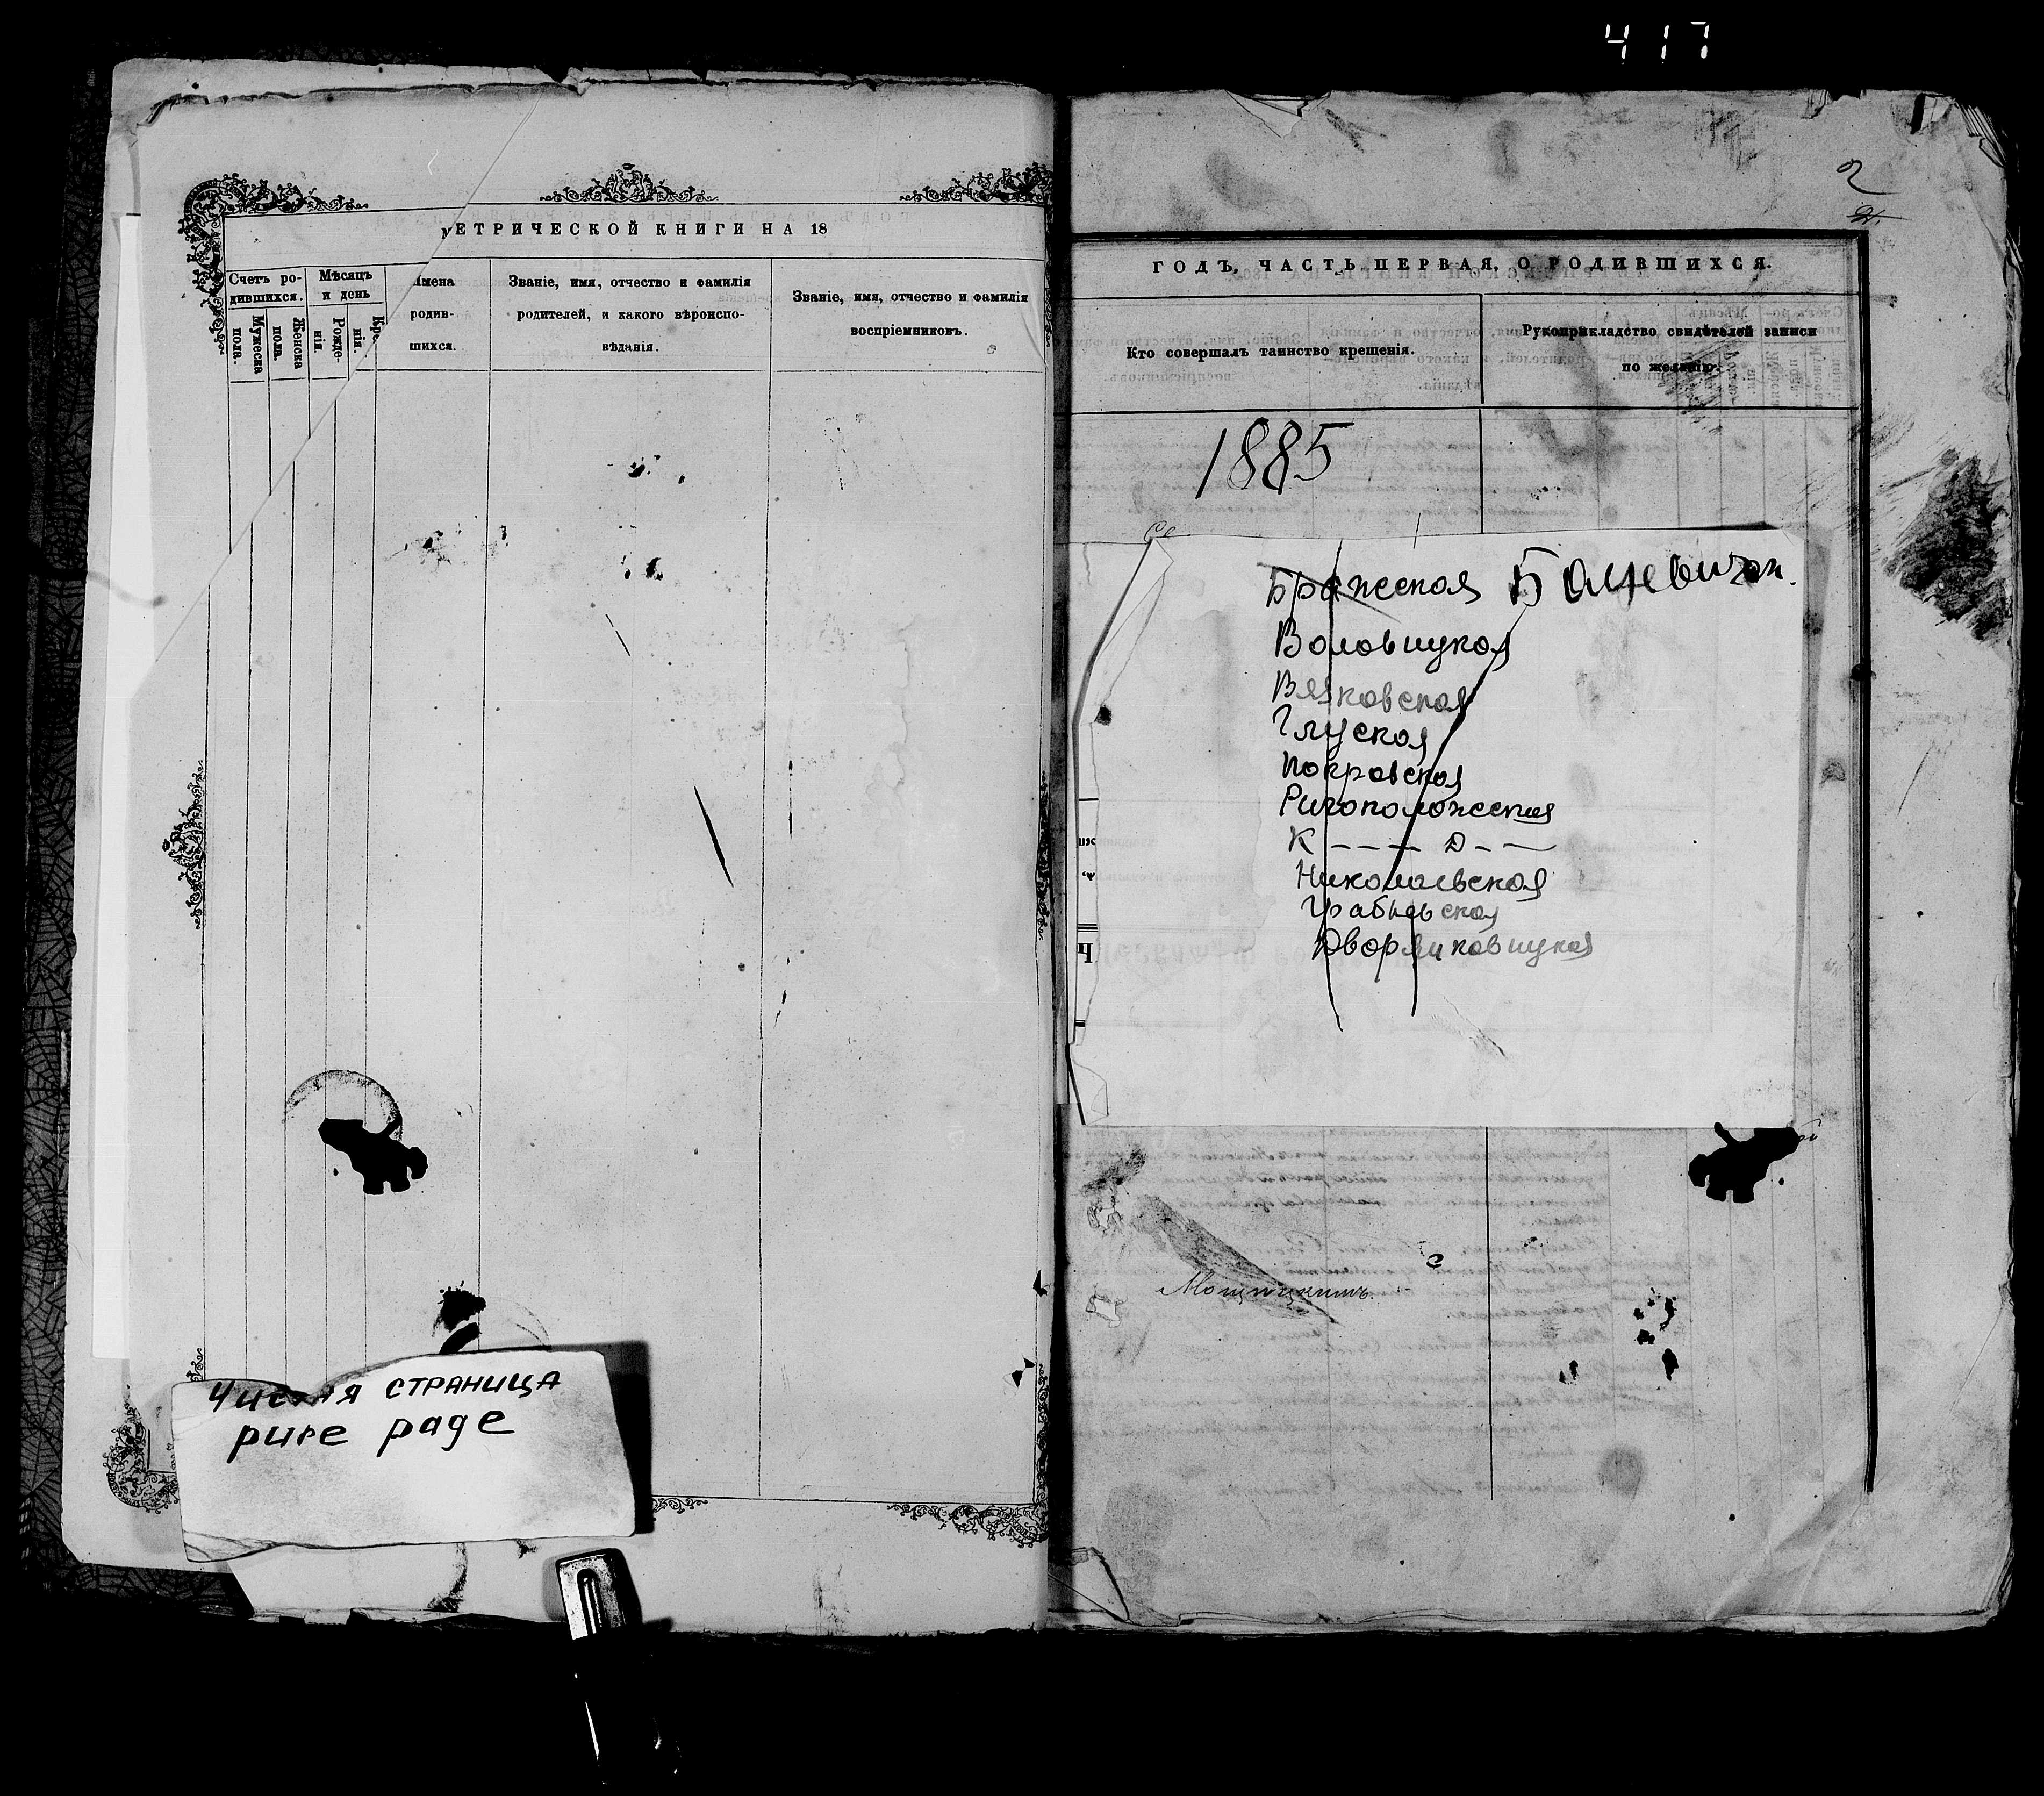 417
2
МЕТРИЧЕСКОЙ КНИГИ НА 18
Счетъ ро-
дившихся.
Мѣсяцъ
и день
Мужеска
пола.
Женска
пола.
Рожде-
нія.
Кре
нія.
Имена
родив-
шихся.
Званіе, имя, отчество и фамилія
родителей, и какого вѣроиспо-
вѣданія.
Званіе, имя, отчество и фамилія
воспріемниковъ.
Чистая СТРАНИЦА
pure page
ГОДЪ, ЧАСТЬ ПЕРВАЯ, О РОДИВШИХСЯ.
Кто совершалъ таинство крещенія.
Рукоприкладство свидѣтелей записи
по желанію.
1885
Бражеская
Воловицкая
Вяжковская
Глуская
Покровская
Ризоположеская
К - - - - Д - -
Николаевская
Дворяниковицкая